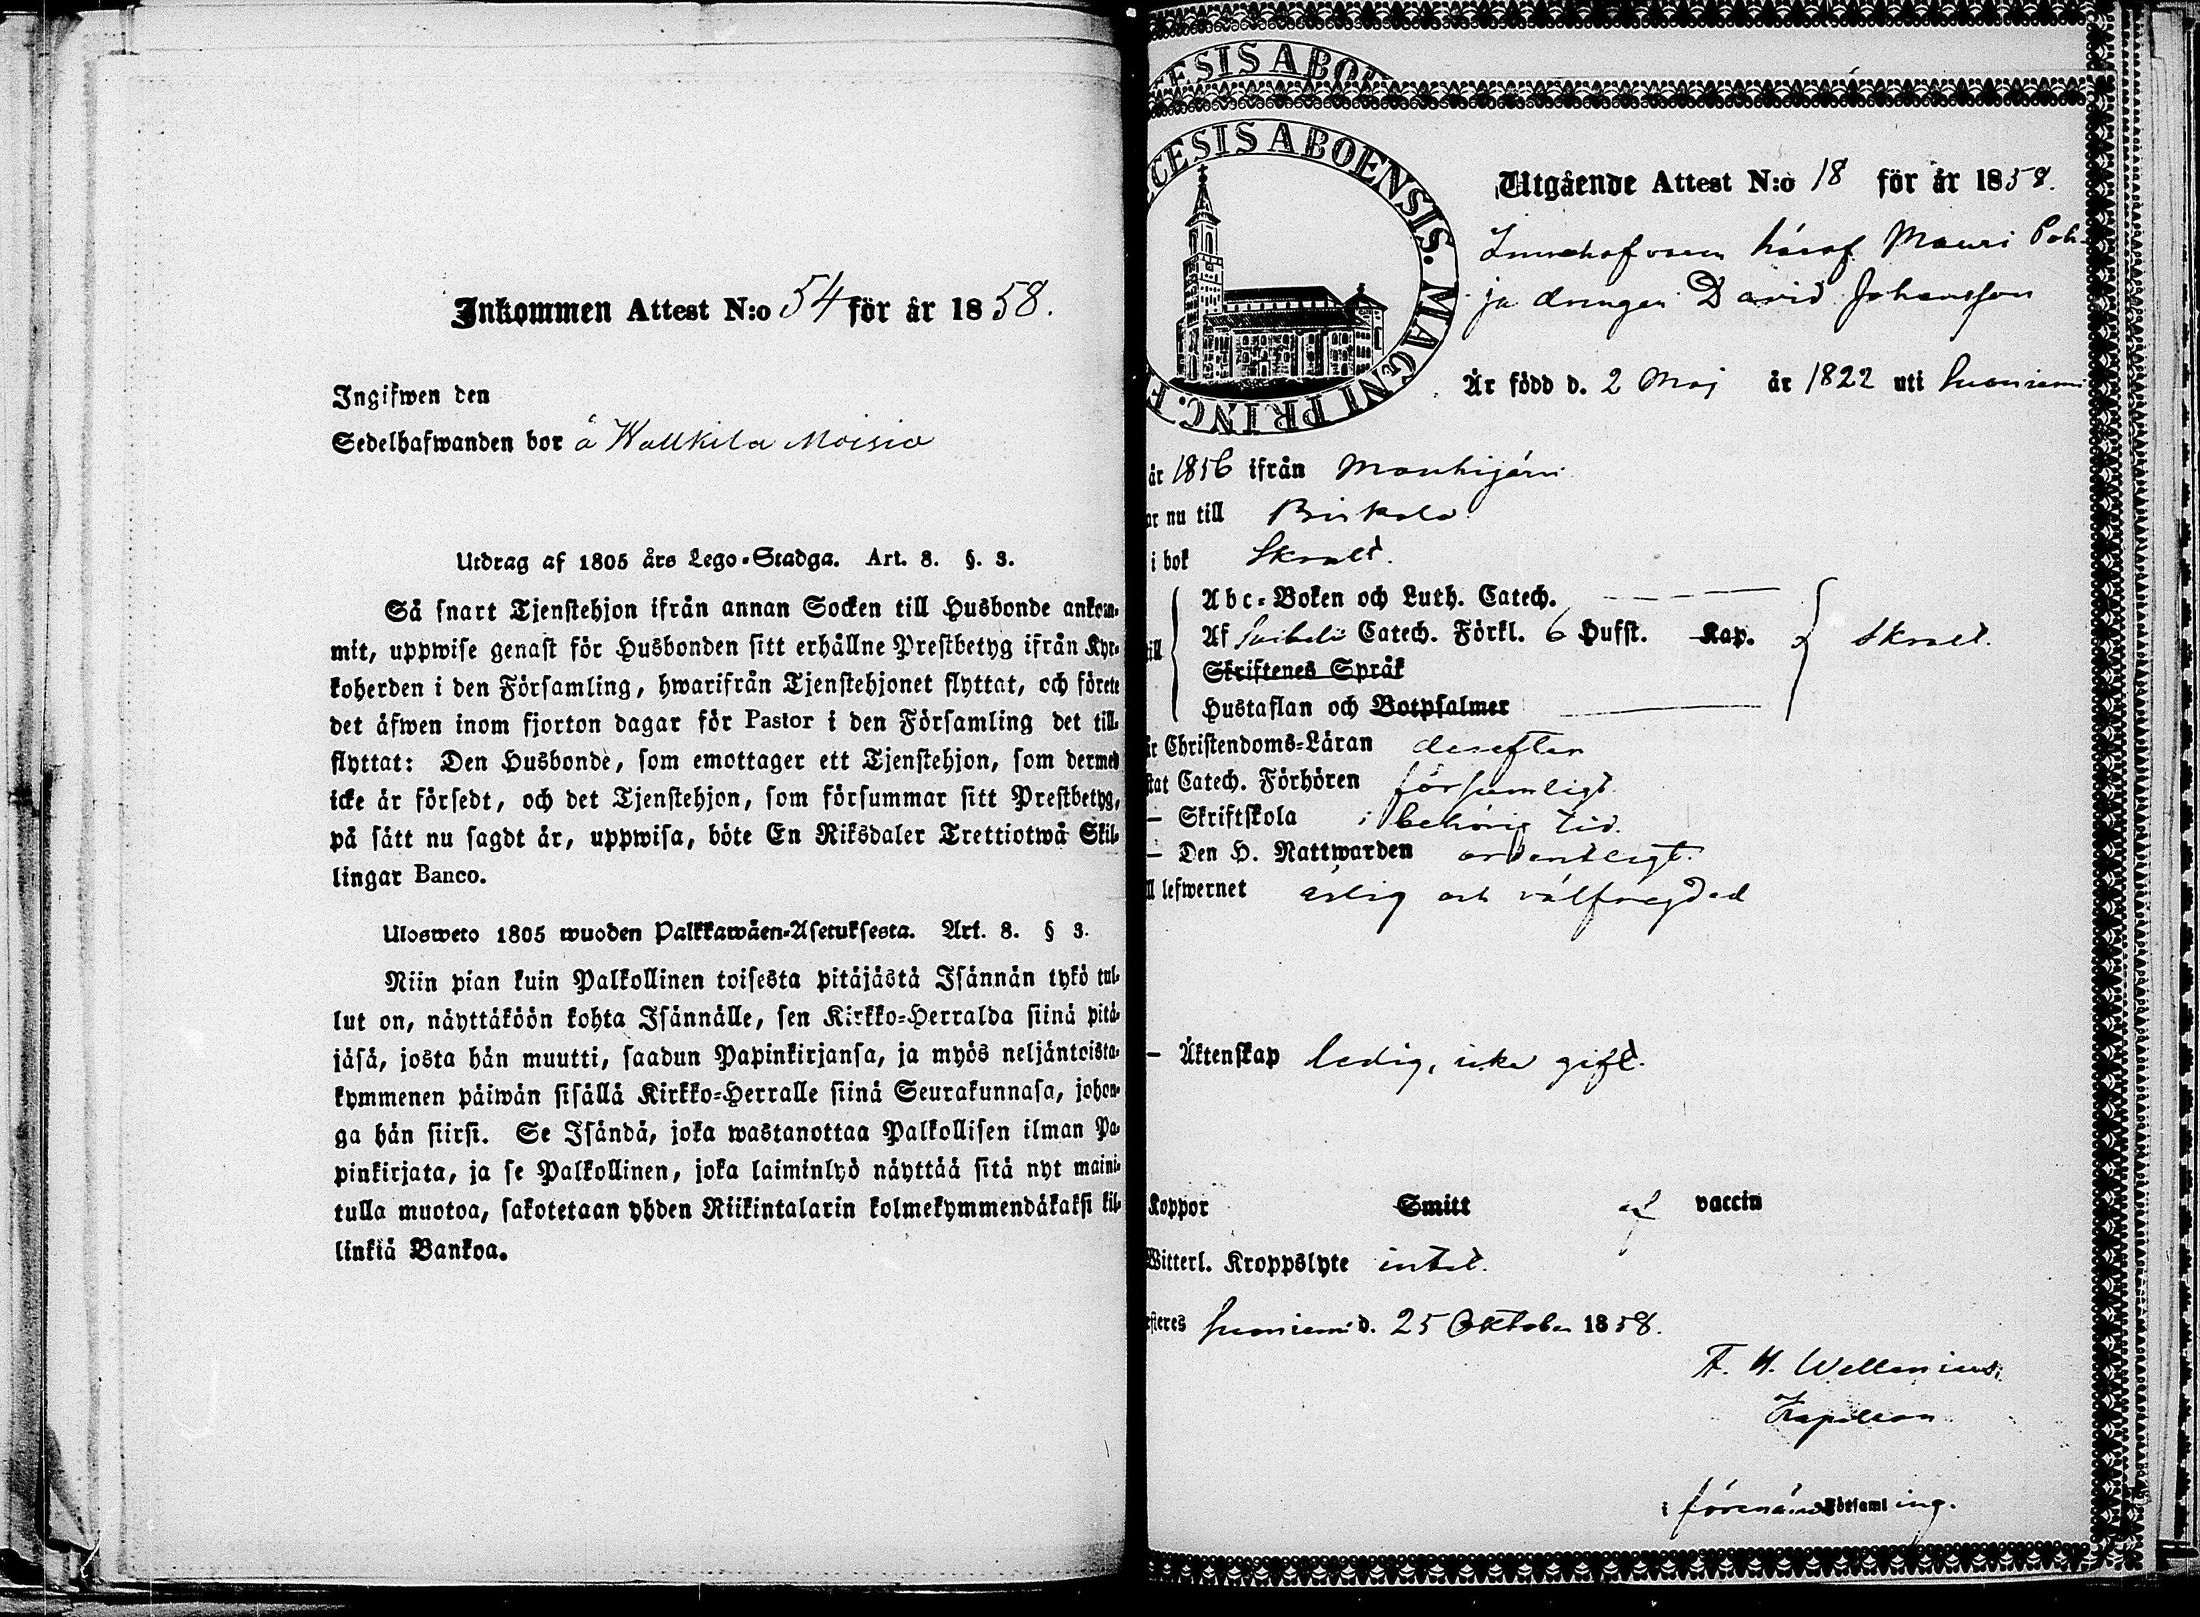 Inkommen Attest N:o 54 för år 1858.
Ingifwen den
Sedelhafwanden bor å Wallkila Moisio
Utdrag af 1805 års Lego-Stadga. Art. 8. §. 3.
Så snart Tjenstehjon ifrån annan Socken till Husbonde ankom-
mit, uppwise genast för Husbonden sitt erhållne Prestbetyg ifrån Kyr-
koherden i den Församling, hwarifrån Tjenstehjonet flyttat, och förete
det äfwen inom fjorton dagar för Pastor i den Församling det till-
flyttat: Den Husbonde, som emottager ett Tjenstehjon, som dermed
icke är försedt, och det Tjenstehjon, som försummar sitt Prestbetyg,
på sätt nu sagdt är, uppwisa, böte En Riksdaler Trettiotwå Skil-
lingar Banco.
Ulosweto 1805 wuoden Palkkawäen-Asetuksesta. Art. 8. § 3.
Niin pian kuin Palkollinen toisesta pitäjästä Isännän tykö tul-
lut on, näyttäköön kohta Isännälle, sen Kirkko-Herralda siinä pitä-
jäsä, josta hän muutti, saadun Papinkirjansa, ja myös neljäntoista-
kymmenen päiwän sisällä Kirkko-Herralle siinä Seurakunnasa, johon-
ga hän siirsi. Se Isändä, joka wastanottaa Palkollisen ilman Pa-
pinkirjata, ja se Palkollinen, joka laiminlyö näyttää sitä nyt maini-
tulla muotoa, sakotetaan yhden Riikintalarin kolmekymmendäkaksi kil-
linkiä Bankoa.
CESIS ABOE
CESIS ABOENSIS. MAGNI PRINC. F
Utgående Attest N:o 18 för år 1858.
Innehafvaren häraf Mauri Poh-
ja drängen David Johansson
Är född d. 2 Maj år 1822 uti Suoniemi
år 1856 ifrån Mouhijärvi
nu till Birkala
i bok Skralt.
Abc-Boken och Luth. Catech.
Af Catech. Förkl. 6 Hufst. Kap. Skralt.
Skriftenes Språk
Hustaflan och Botpsalmer
Christendoms-Läran derefter
Catech. Förhören försumligt
— Skriftskola i behörig tid.
— Den H. Nattwarden ordentligt.
lefwernet ärlig och välfrägdad
— Äktenskap ledig, icke gift.
Koppor Smitt af vaccin
Witterl. Kroppslyte intet.
Suoniemi d. 25 Oktober 1858.
F. H. Wellenius,
Kapellan
i förenämnde Församling.